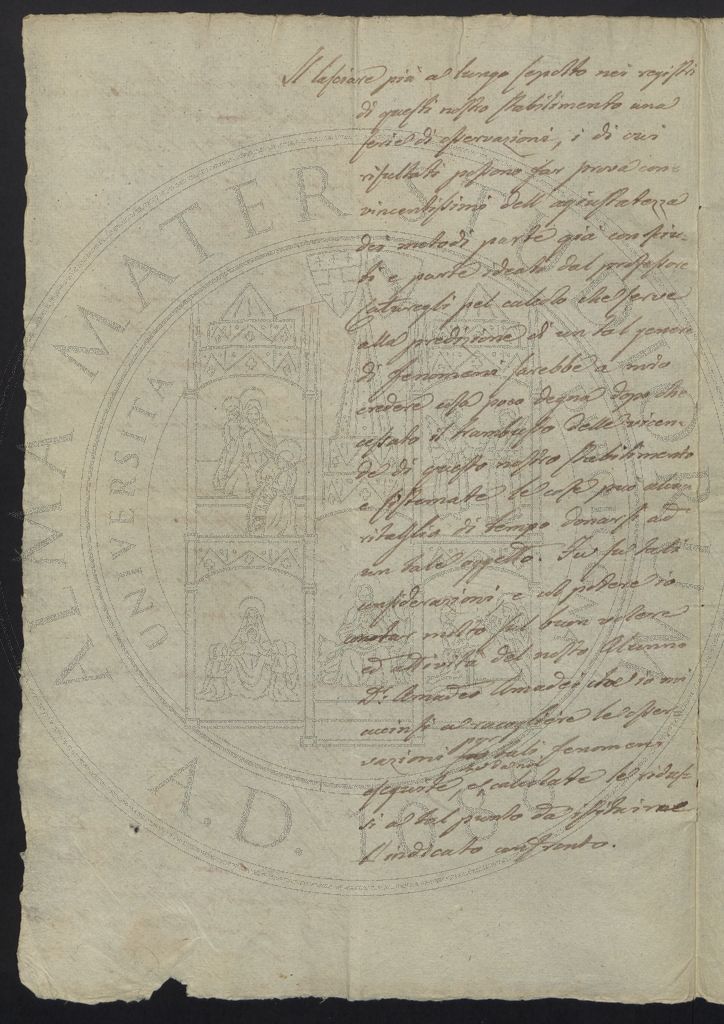 Il lasciare più a lungo sepolto nei registri
di questi nostro stabilimento una
serie di osservazioni, i di cui
risultati possono far prova con=
vincentissimi dell'agiustatezza
dei metodi parte già conosciu=
ti e parte ideati dal professore
Caturegli pel calcolo che serve
alla predizione di un tal genere
di fenomeni sarebbe a mio
credere cosa poco degna dopo che
cessato il trambusto delle vicen=
de di questo nostro stabilimento
e sistemate le cose può alcun
ritaglio di tempo donarsi ad
un tale oggetto. Fu su tali
considerazioni, e col potere io
contar molto sul buon volere
ed attività del nostro Alunno
Dr. Amadeo Amadei che io mi
accinsi a raccogliere le osser=
vazioni tali fenomeni
eseguite, e calcolate le ridus=
si a tal punto da istituirne
l'indicato confronto.
ALMA MATER STUDIORUM
UNIVERSITÀ
A.D. 1088